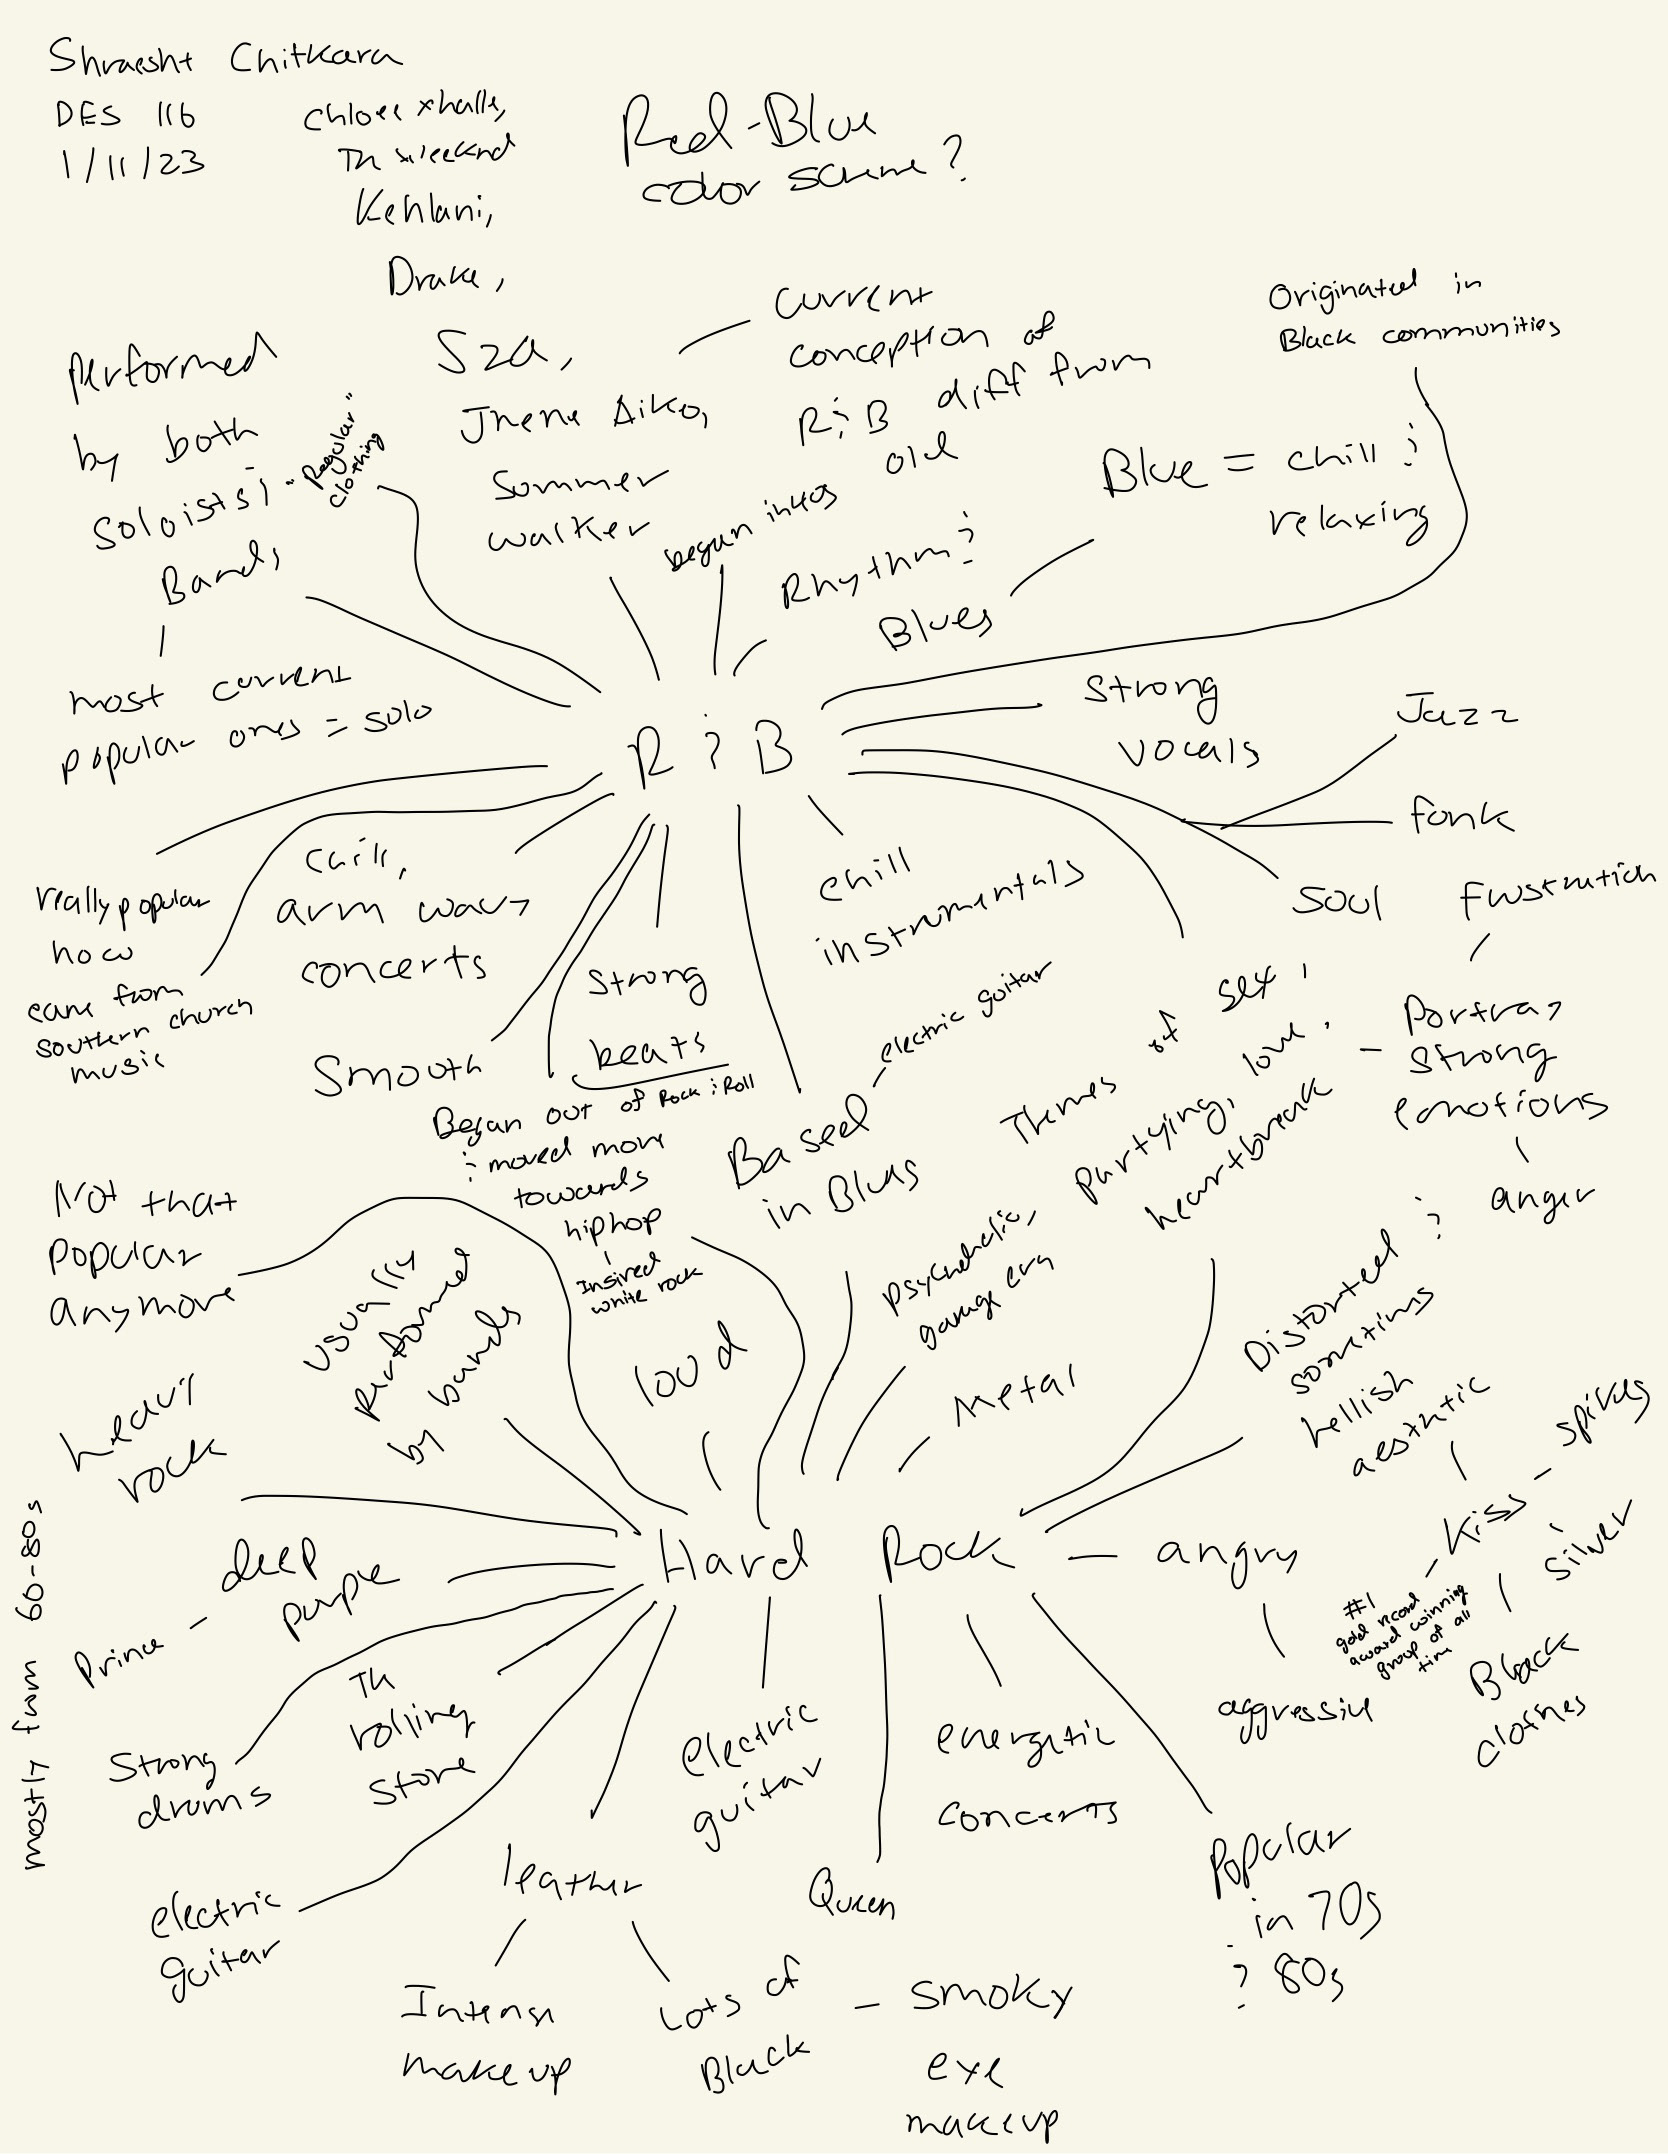 Shraesht Chitkara
DES 116
1/11/23
Chloe x halle,
Th weeknd
Kehlani,
Drake,
Sza,
Jhene Aiko,
Summer
walker
Red-Blue
color scheme?
Current
conception of
R&B diff from
old
Originated in
Black communities
Performed
by both
soloists &
Bands
"Regular"
clothing
most current
popular ones = solo
began in 40s
Rhythm &
Blues
Blue = chill &
relaxing
R & B
Strong
vocals
Jazz
funk
soul
really popular
now
came from
southern church
music
chill,
arm wavy
concerts
Smooth
Strong
beats
chill
instrumentals
Began out of Rock & Roll
& moved more
towards
hiphop
Insired
white rock
Based
in Blues
electric guitar
Themes of sex,
partying, love,
heartbreak
Portray
strong
emotions
frustration
anger
Not that
popular
anymore
usually
performed
by bands
loud
psychedelic,
garage era
Metal
Distorted &
sometims
hellish
aesthetic
Kiss
spikes
silver
Black
clothes
#1
gold record
award winning
group of all
tim
heavy
rock
mostly from 60-80s
deep
purple
Prince
Hard Rock
angry
aggressive
Strong
drums
Th
rolling
stone
electric
guitar
energetic
concerts
electric
guitar
leather
Intense
makeup
Lots of
Black
smoky
eye
makeup
Queen
Popular
in 70s
& 80s